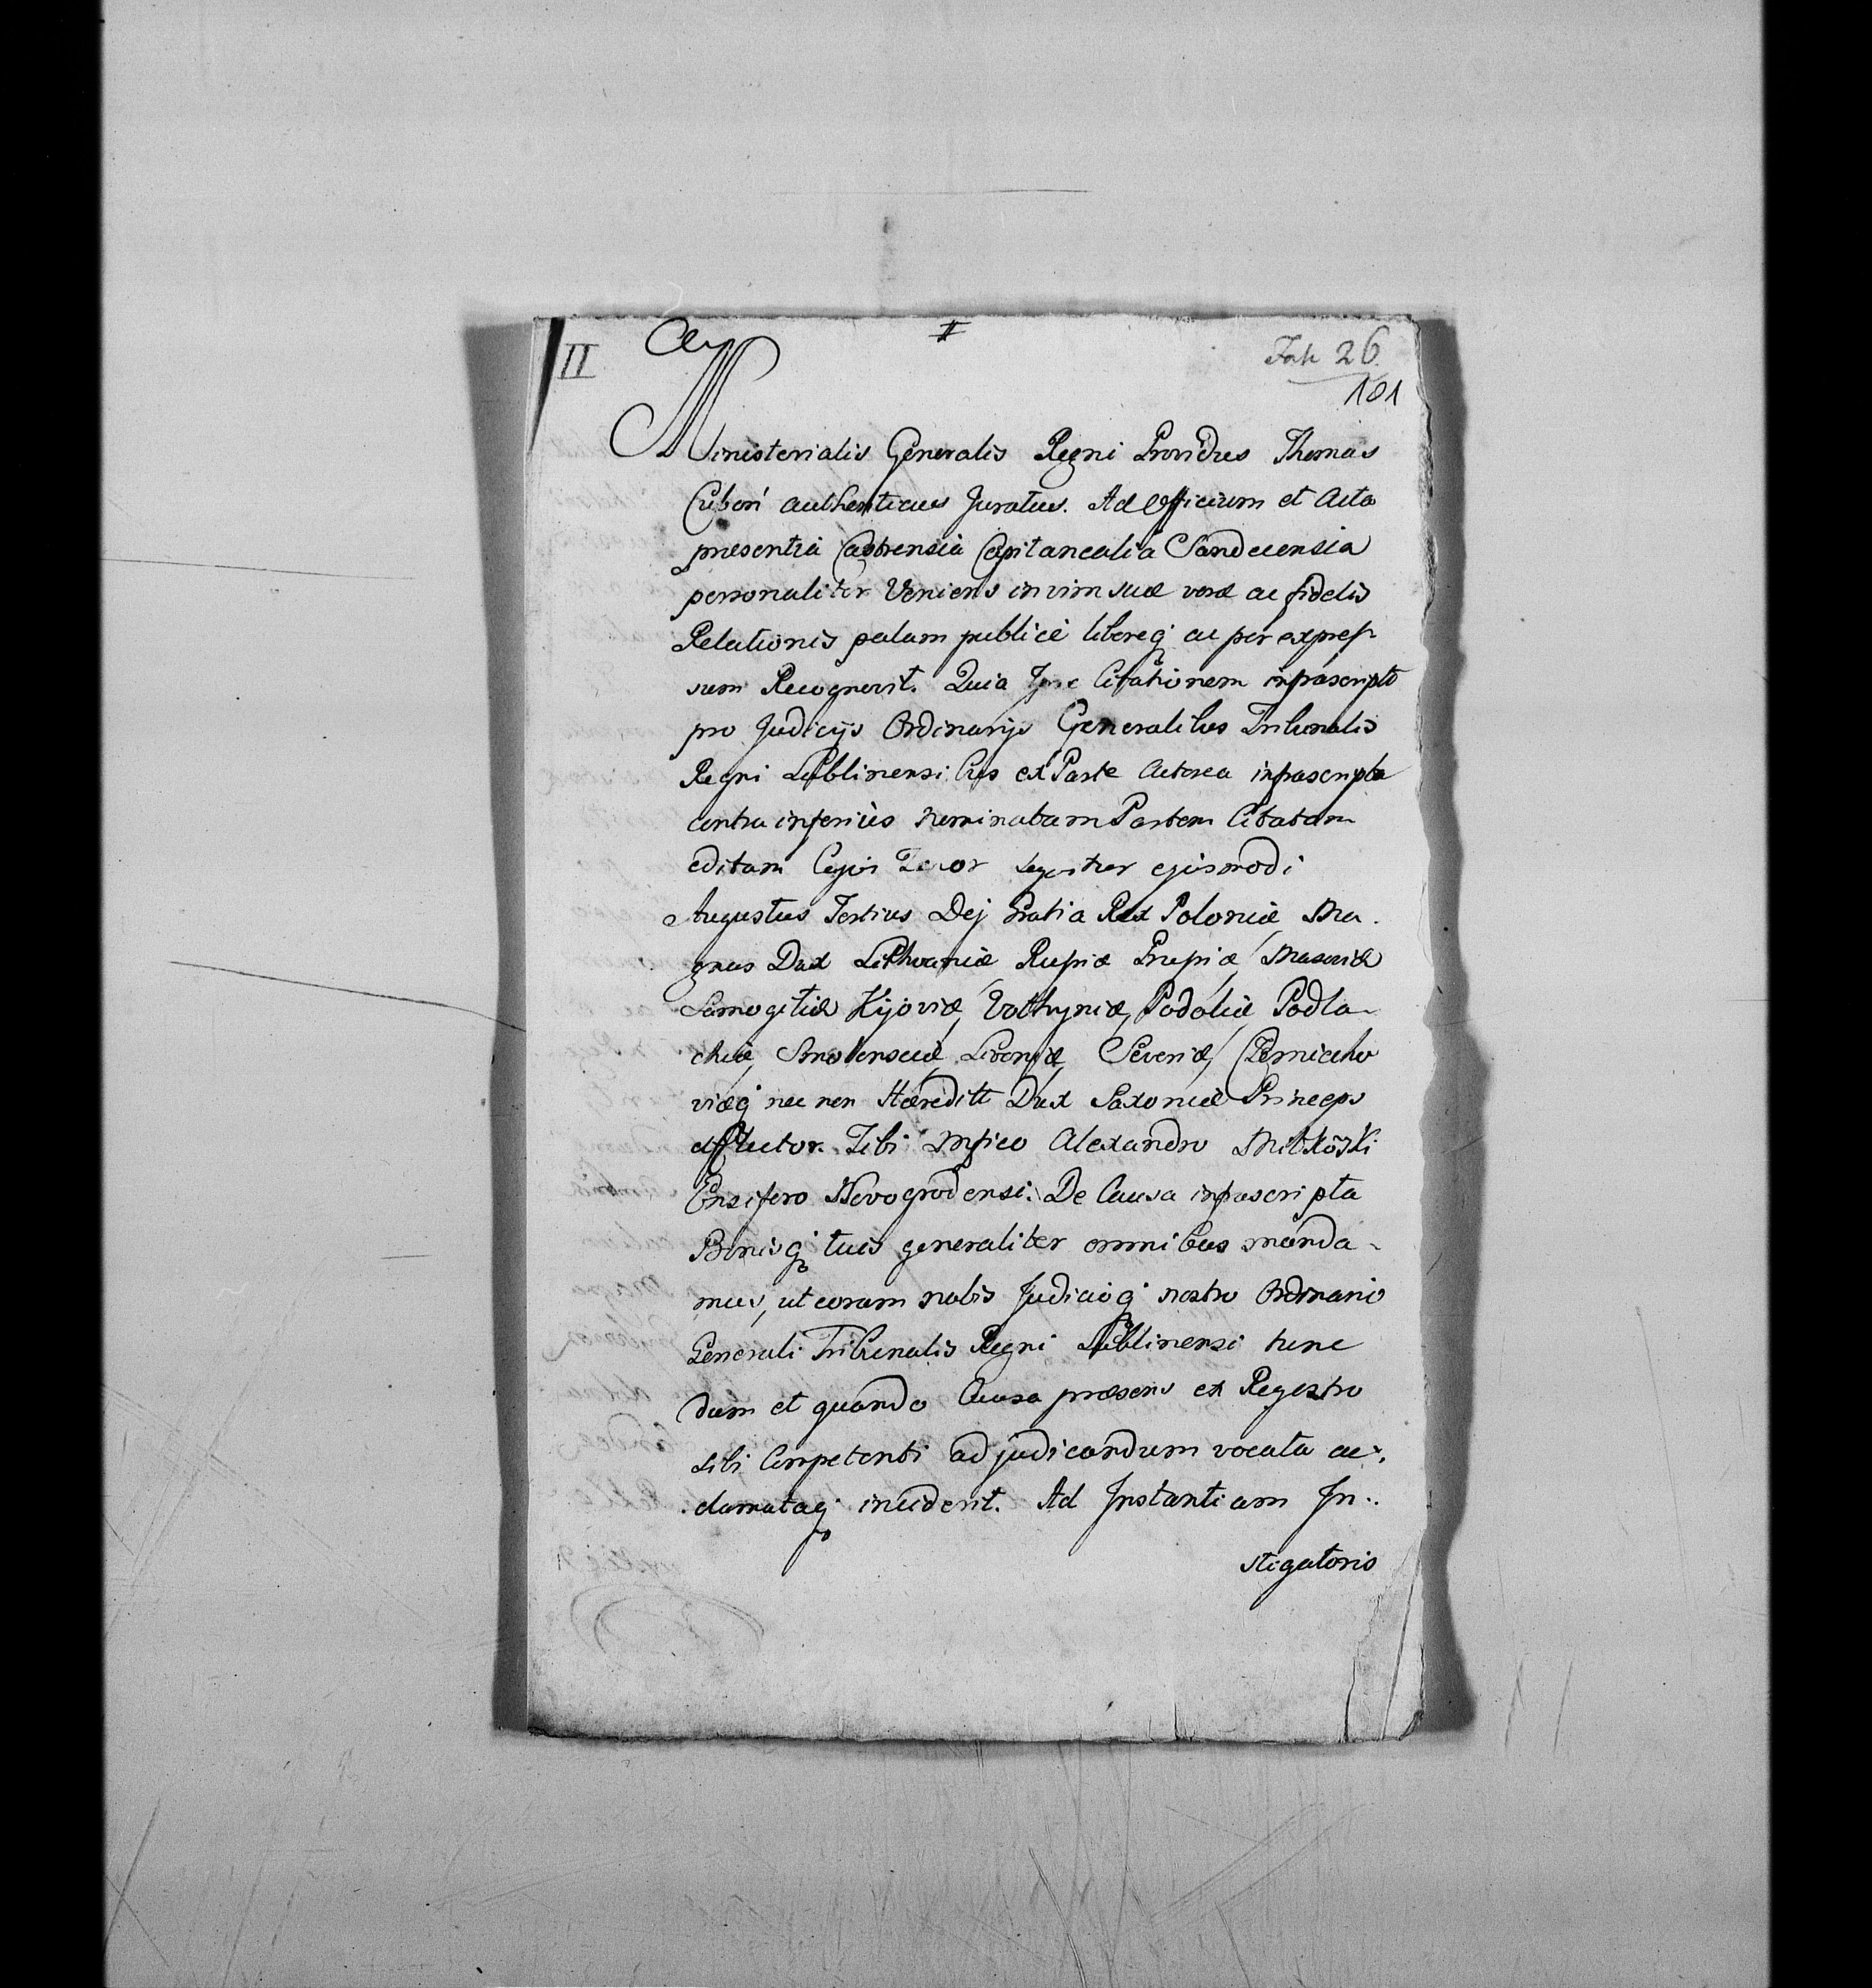 II
#
26
181
Ministerialis Generalis Regni Providus Thomas
authenticus Juratus. Ad Officium et Acta
præsentia Castrensia Capitanealia Sandecensia
personaliter Veniens in vim suæ veræ ac fidelis
Relationis palam publicè libereq; ac per expres
sum Recognovit. Quia Ipse Citationem infrascriptã
pro Judicijs Ordinarijs Generalibus Tribunalis
Regni Lublinensibus ex Parte Actorea infrascripta
contra inferiùs nominatam Partem Citatam
editam Cujus Tenor sequitur ejusmodi
Augustus Tertius Dej Gratia Rex Poloniæ, Ma-
gnus Dux Lithvaniæ Russiæ Prussiæ, Masoviæ
Samogitiæ Kijoviæ, Volhyniæ, Podoliæ, Podla-
chiæ, Smolensciæ, Livoniæ, Severiæ, Czerniecho
viæq; nec non Hæreditt Dux Saxoniæ Princeps
et Elector. Tibi Mgfico Alexandro Miłkoski
Ensifero Novogrodensi. De Causa infrascripta
Bonisq; tuis generaliter omnibus manda-
mus, ut coram nobis Judicioq; nostro Ordinario
Generali Tribunalis Regni Lublinensi tunc
dum et quando Causa præsens ex Regestro
sibi Competenti ad judicandum vocata ac-
clamataq; inciderit. Ad Instantiam In-
stigatoris